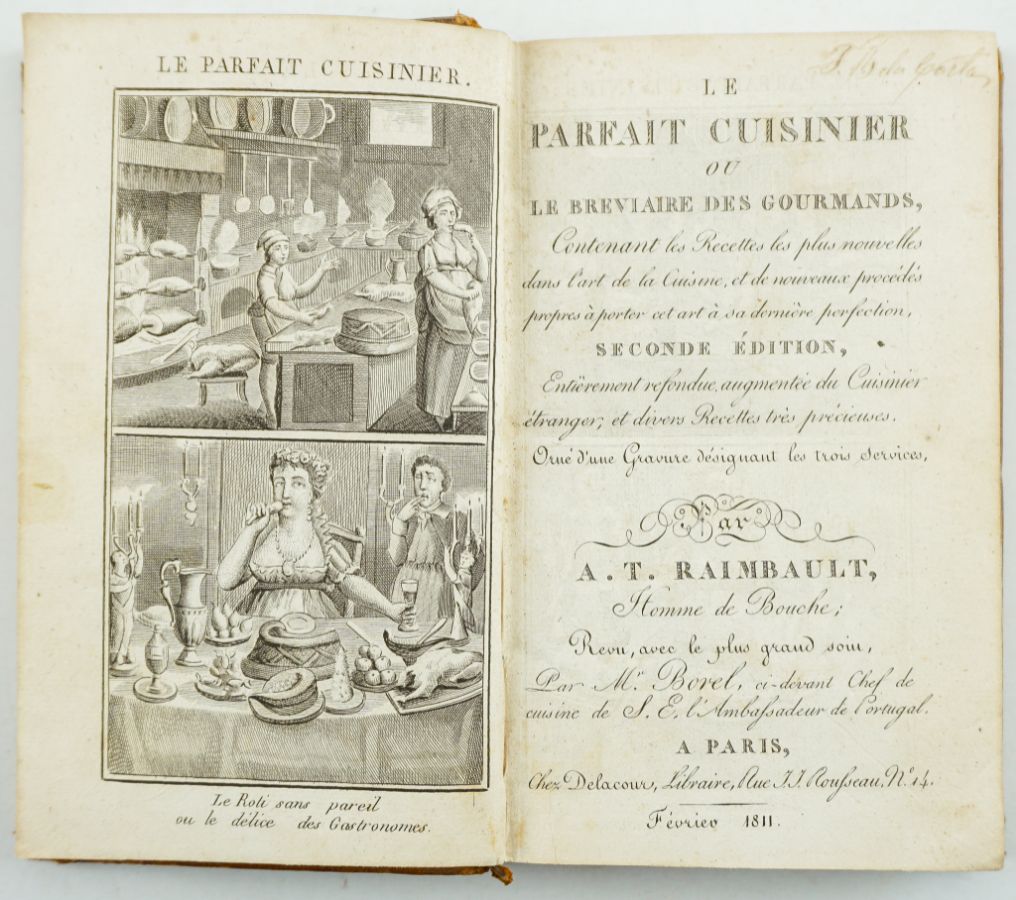 LE PARFAIT CUISINIER.
Le Roti sans pareil
ou le délice des Gastronomes.
LE
PARFAIT CUISINIER
OU
LE BREVIAIRE DES GOURMANDS,
Contenant les Recettes les plus nouvelles
dans l'art de la Cuisine, et de nouveaux procédés
propres à porter cet art à sa dernière perfection,
SECONDE ÉDITION,
Entièrement refondue, augmentée du Cuisinier
étranger, et divers Recettes très précieuses.
Orné d'une Gravure désignant les trois services,
Par
A. T. RAIMBAULT,
Homme de Bouche;
Revu, avec le plus grand soin,
Par Mr. Borel, ci-devant Chef de
cuisine de S. E. l'Ambaſsadeur de Portugal.
A PARIS,
Chez Delacour, Libraire, Rue J.J. Rouſseau, No. 14.
Février 1811.